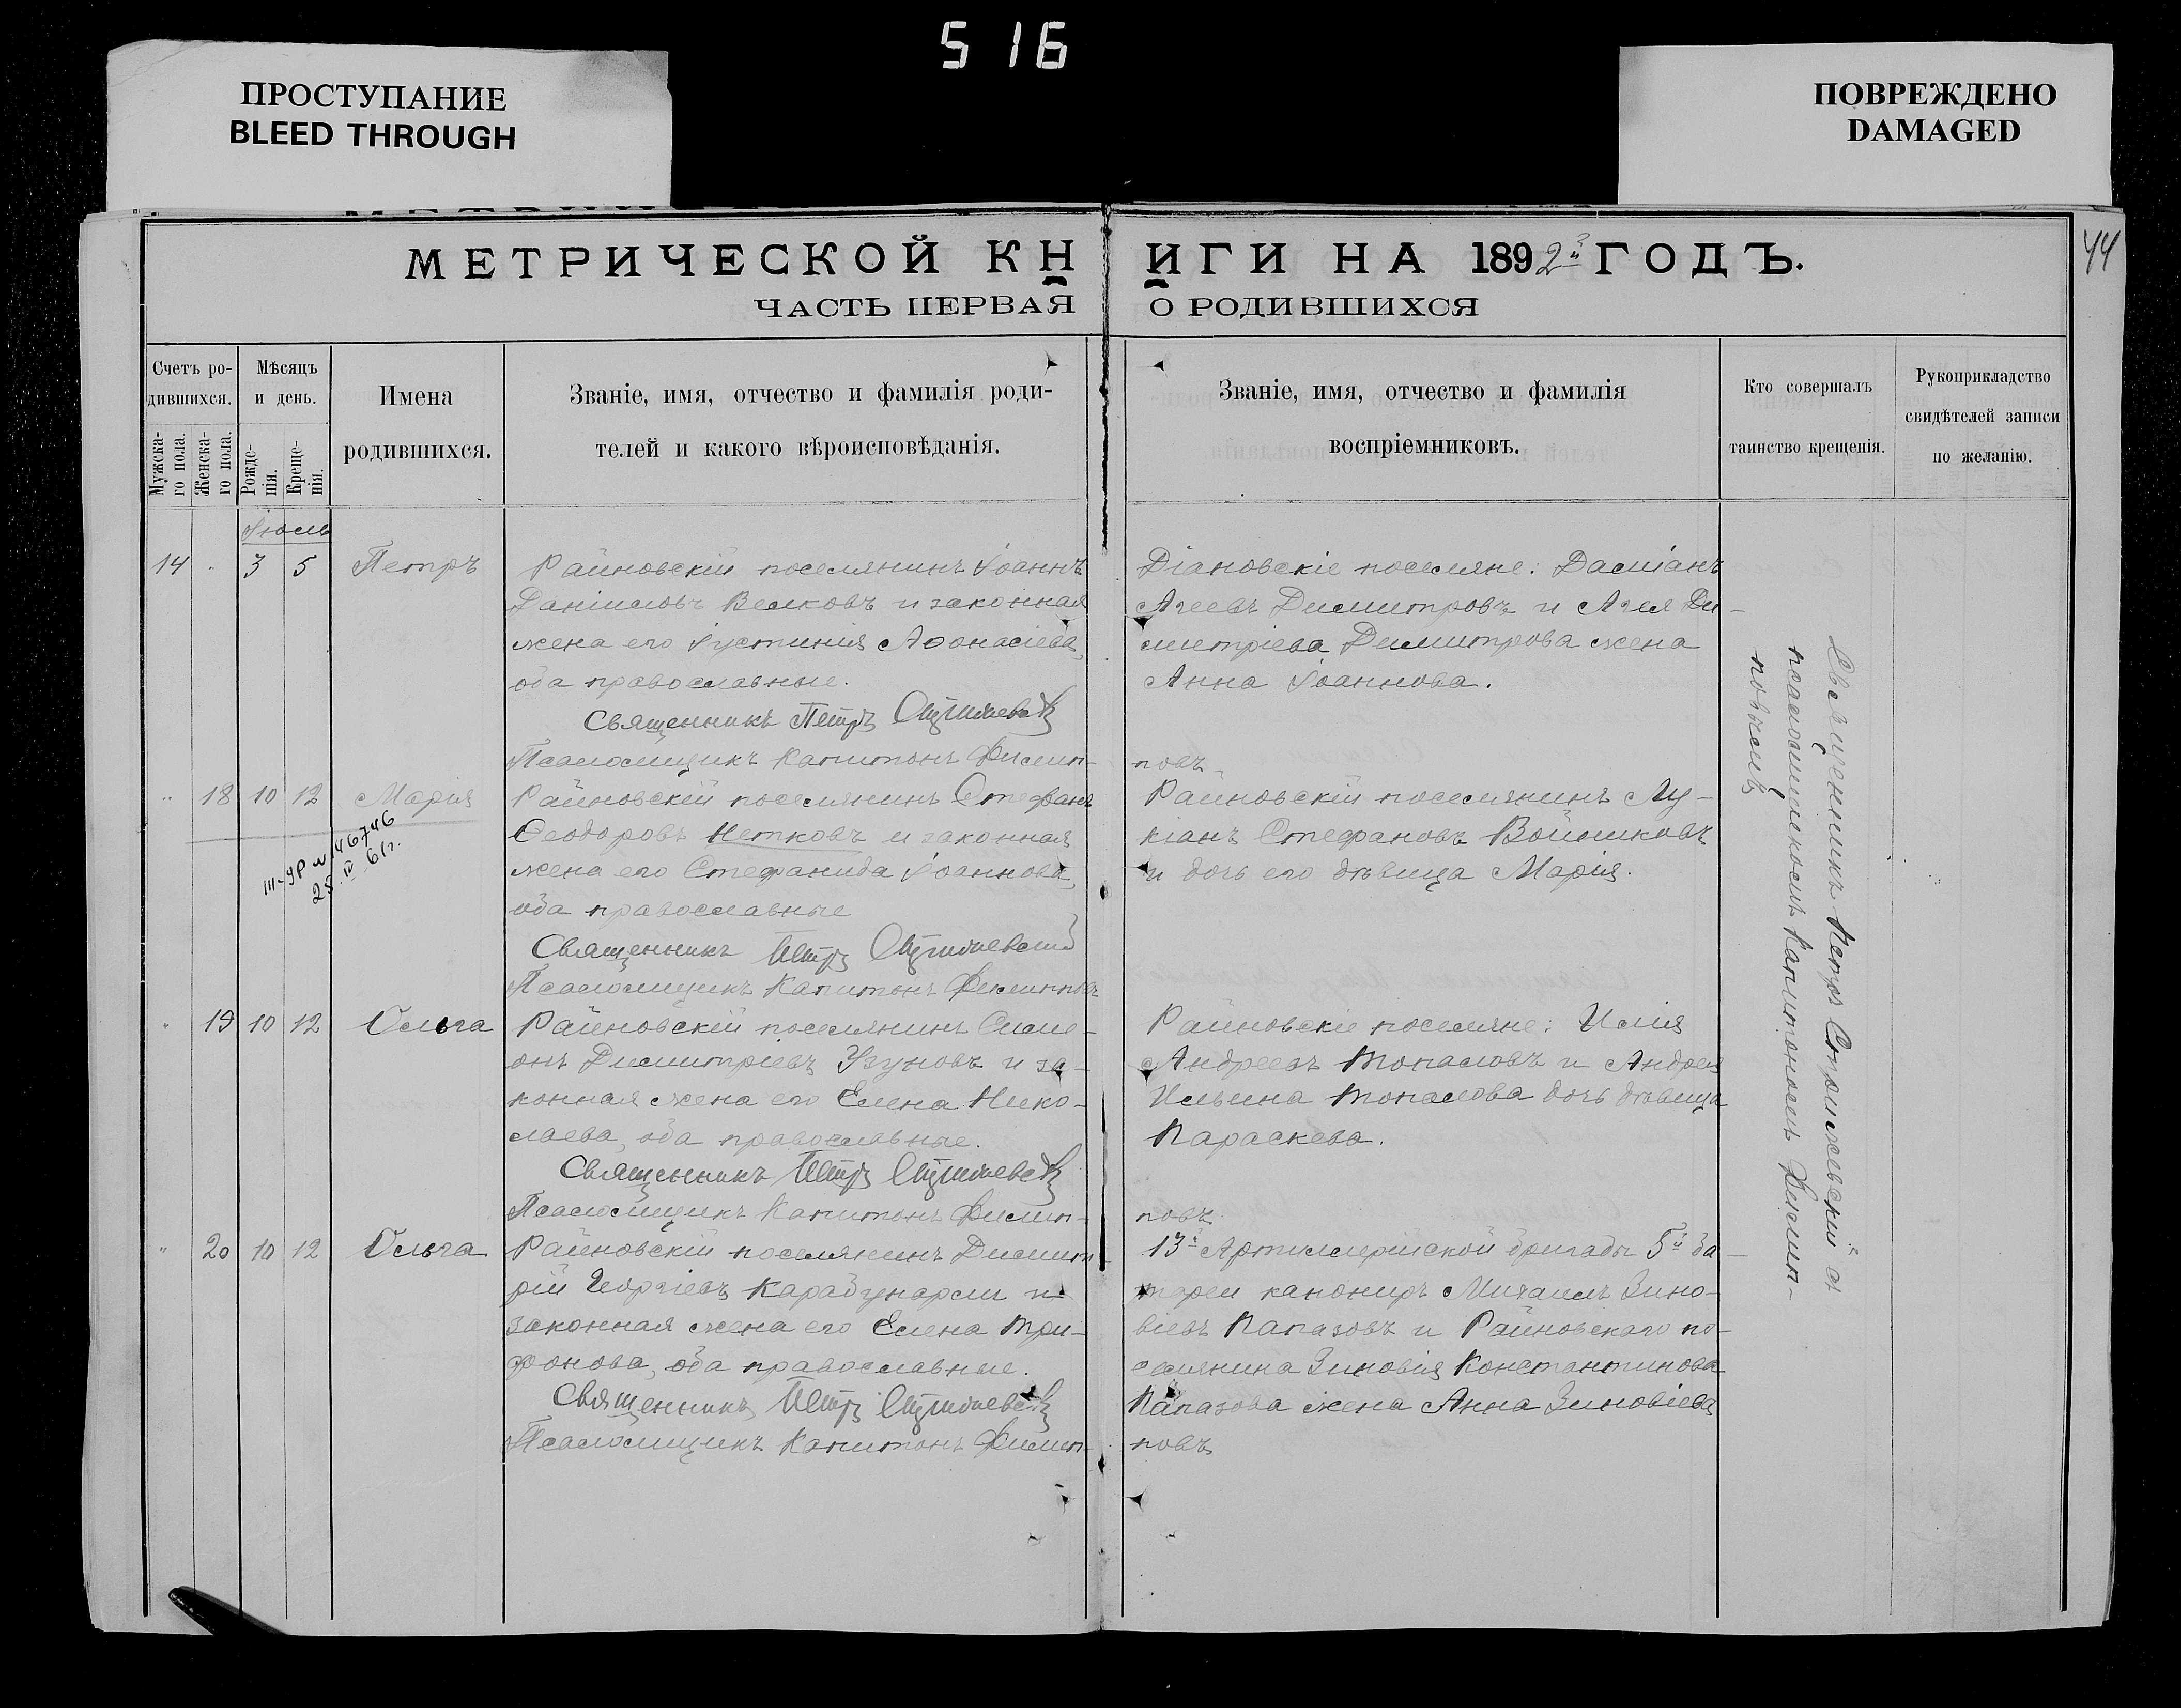 516
ПРОСТУПАНИЕ
BLEED THROUGH
ПОВРЕЖДЕНО
DAMAGED
44
МЕТРИЧЕСКОЙ КНИГИ НА 1892й ГОДЪ.
ЧАСТЬ ПЕРВАЯ О РОДИВШИХСЯ
Счетъ ро-
дившихся.
Мужска-
го пола.
Женска-
го пола.
Мѣсяцъ
и день.
Рожде-
нія.
Креще-
нія.
Имена
родившихся.
Званіе, имя, отчество и фамилія роди-
телей и какого вѣроисповѣданія.
Званіе, имя, отчество и фамилія
воспріемниковъ.
Кто совершалъ
таинство крещенія.
Рукоприкладство
свидѣтелей записи
по желанію.
Іюль
14 " 3 5 Петръ
Райновскій поселянинъ Іоаннъ
Даніиловъ Велковъ и законная
жена его Іустинія Аѳонасіева,
оба православные.
Священникъ Петръ
Псаломщикъ Капитонъ Филип-
повъ
Діановскіе поселяне: Даміанъ
Агеевъ Димитровъ и Агея Ди-
митріева Димитрова жена
Анна Іоаннова.
" 18 10 12 Марія
28 IV 61г.
Райновскій поселянинъ Стефанъ
Ѳеодоровъ Нетковъ и законная
жена его Стефанида Іоаннова,
оба православные
Священникъ Петръ
Псаломщикъ Капитонъ Филипповъ
Райновскій поселянинъ Лу-
кіанъ Стефановъ Войниковъ
и дочь его дѣвица Марія.
" 19 10 12 Ольга
Райновскій поселянинъ Симе-
онъ Димитріевъ Узуновъ и за-
конная жена его Елена Нико-
лаева, оба православные.
Священникъ Петръ
Псаломщикъ Капитонъ Филип-
повъ
Райновскіе поселяне: Илія
Андреевъ Топаловъ и Андрея
Ильина Топалова дочь дѣвица
Параскева.
" 20 10 12 Ольга
Райновскій поселянинъ Димит-
рій Георгіевъ Карабунарли и
законная жена его Елена Три-
фонова, оба православные.
Священникъ Петръ
Псаломщикъ Капитонъ Филип-
повъ
13й Артиллерійской бригады 5й ба-
тареи канониръ Михаилъ Зино-
віевъ Папазовъ и Райновскаго по-
селянина Зиновія Константинова
Папазова жена Анна Зиновіева
Священникъ Петръ съ
псаломщикомъ Капитономъ Филип-
повымъ